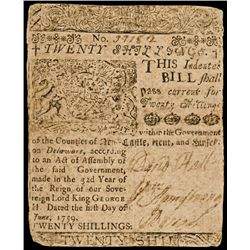 No.
TWENTY SHILLINGS.
THIS Indented
BILL shall
pass current for
Twenty Shillings
within the Government
of the Counties of New-Castle, Kent, and Sussex
on Delaware, according
to an Act of Assembly of
the said Government,
made in the 32d Year of
the Reign of our Sovereign
Lord King GEORGE
II. Dated the first Day of
June, 1759.
TWENTY SHILLINGS.